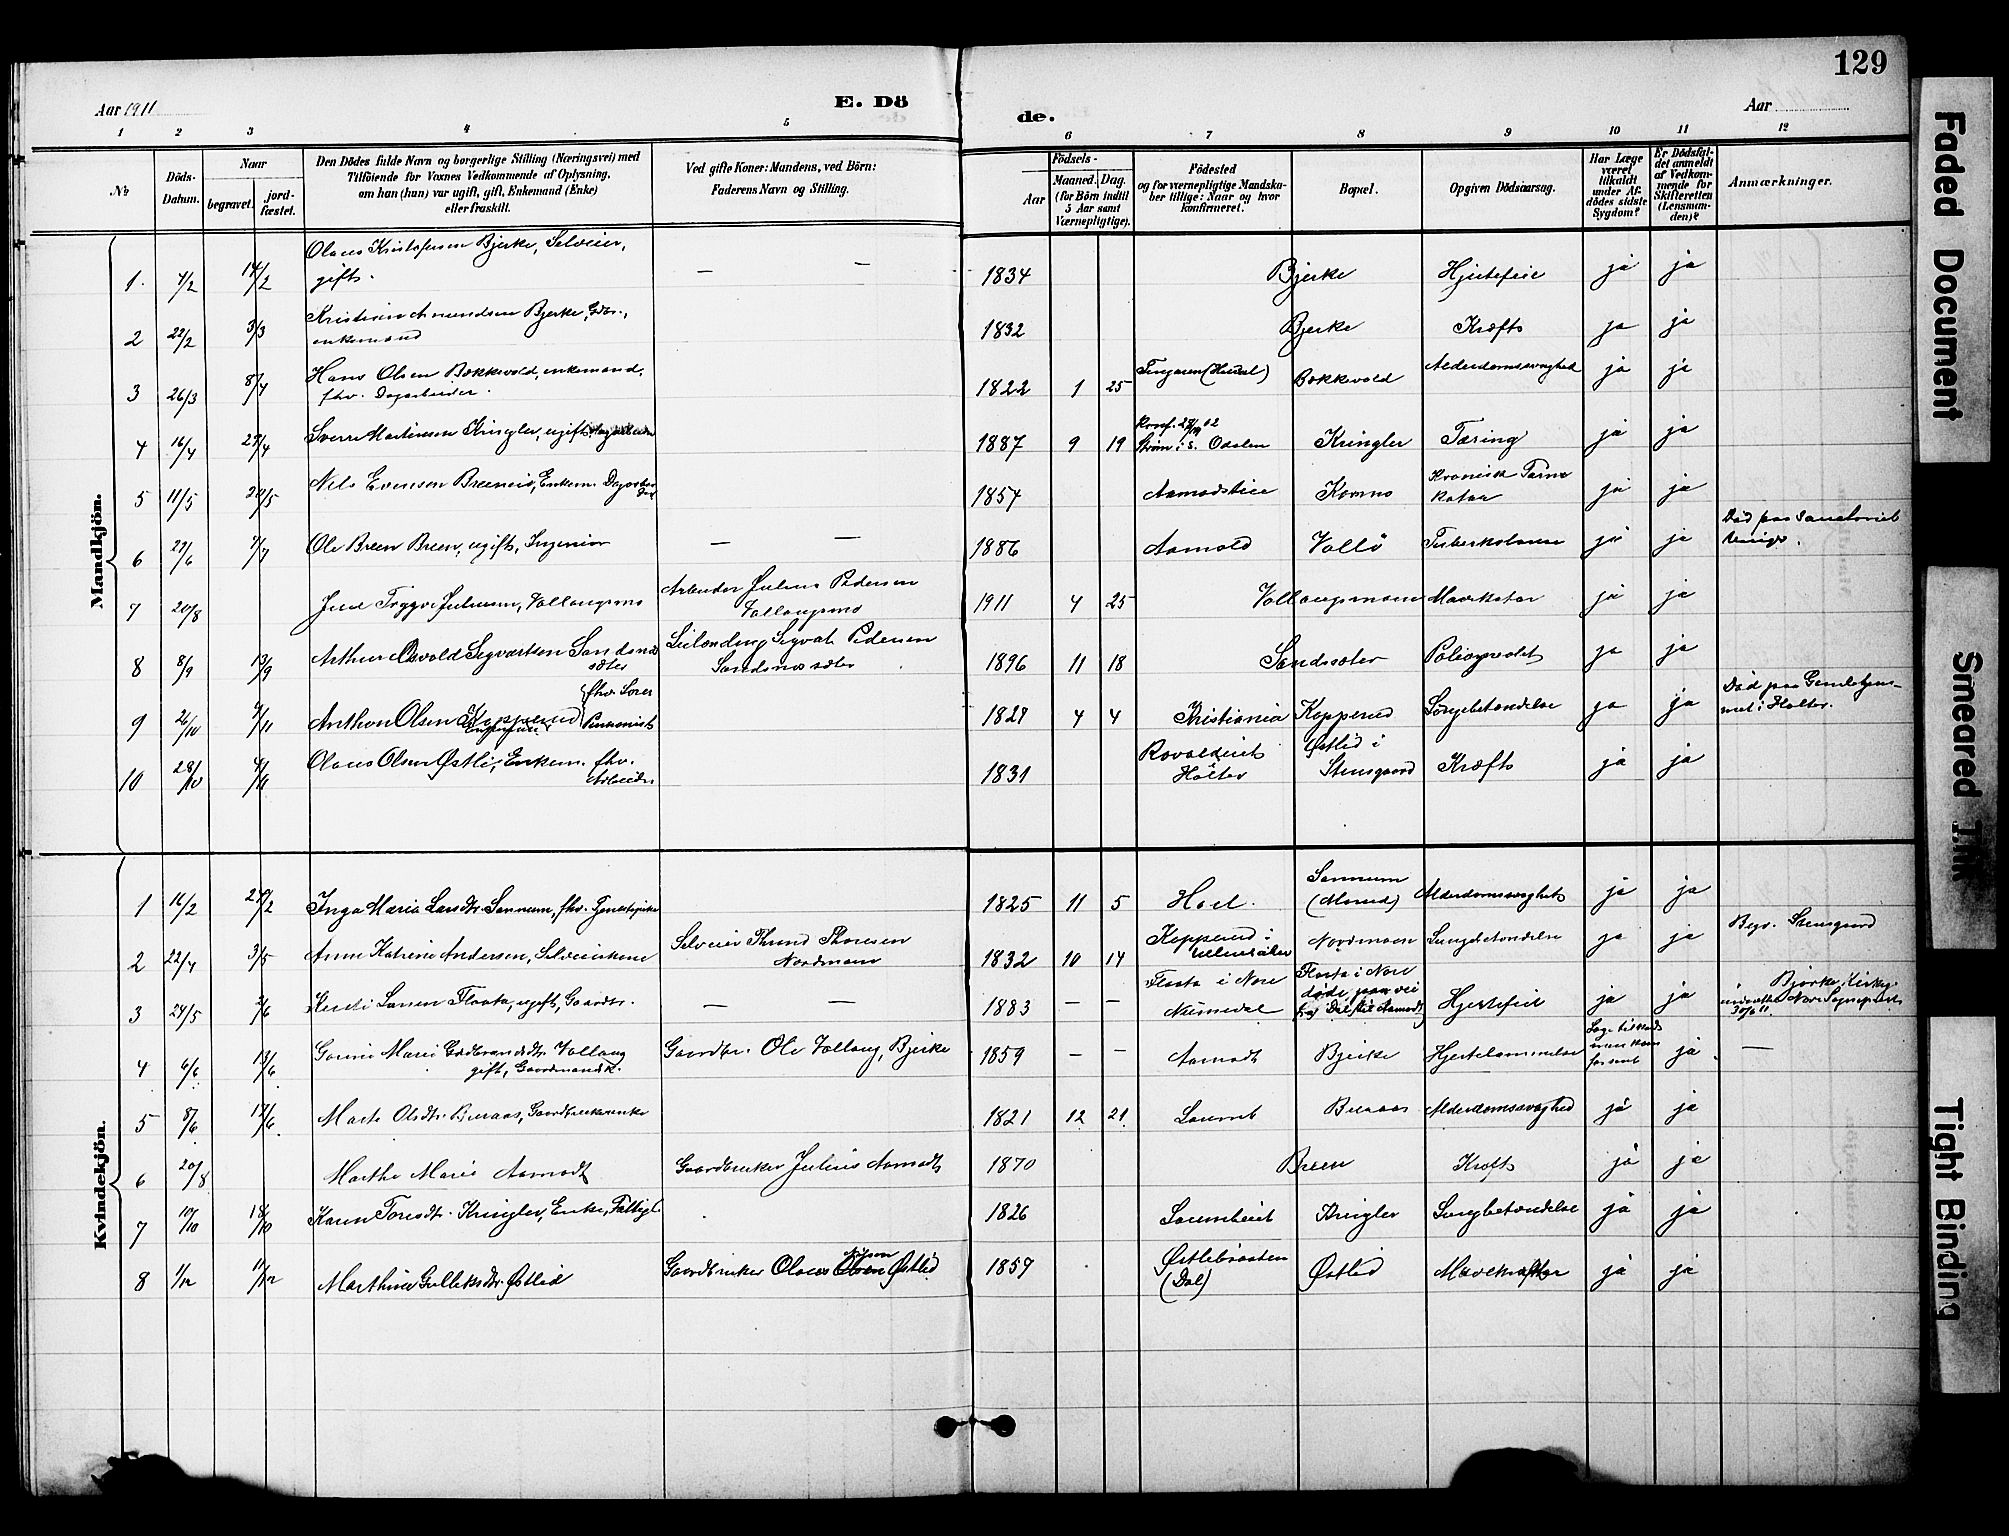 129
Aar 1911
E. Dö
de.
Aar
1 2 3 4 5 6 7 8 9 10 11 12
No
Döds-
Datum.
Naar
begravet.
jord-
fæstet.
Den Dödes fulde Navn og borgerlige Stilling (Næringsvei) med
Tilföiende for Voxnes Vedkommende af Oplysning,
om han (hun) var ugift, gift, Enkemand (Enke)
eller fraskilt.
Ved gifte Koner: Mandens, ved Börn:
Faderens Navn og Stilling.
Födsels-
Aar
Maaned. Dag.
(for Börn indtil
5 Aar samt
Værnepligtige).
Födested
og for værnepligtige Mandska-
ber tillige: Naar og hvor
konfirmeret.
Bopæl.
Opgiven Dödsaarsag.
Har Læge
været
tilkaldt
under Af-
dödes sidste
Sygdom?
Er Dödsfal-
det anmeldt
af Vedkom-
mende for
Skifteretten
(Lensman-
den)?
Anmærkninger.
Mandkjön.
1. 7/2 14/2 Olaus Kristofersen Bjerke, Selveier,
gift. — — 1834 Bjerke Hjertefeil ja ja
2 22/2 3/3 Kristian Amundsen Bjerke, Gdbr.,
enkemand 1832 Bjerke Kræft ja ja
3 26/3 8/4 Hans Olsen Bakkevold, enkemand,
fhv. Dagarbeider. 1822 1 25 Bakkevold Alderdomssvaghed ja ja
4 16/4 23/4 Sverre Martinsen Kringler, ugift, Dagarbeider 1887 9 19 Konf.
Strøm i S. Odalen Kringler Tæring ja ja
5 11/5 20/5 Nels Evensen Breeneie, Enkem. Dagarbei
der 1854 Aamodteie Kronisk Tarm
katar ja ja
6 27/6 7/7 Ole Breen Breen, ugift, Ingeniør — — 1886 Aamold Vollö Tuberkulose ja ja Död paa Sanatoriet
7 20/8 Juul Trygve Juliussen, Vollaugsmo Arbeider Julius Pedersen
Vollaugsmo 1911 4 25 Vollaugsmoen Mavekatar ja ja
8 8/9 13/9 Arthur Osvald Sigvartsen Sandsnes
sæter Leilænding Sigvat Pedersen
Sandsnessæter 1896 11 18 Sandssæter Poliomyelit ja ja
9 26/10 4/11 Anthon Olsen Kopperud fhv. Sorer
Pensionist 1827 4 4 Kristiania Kopperud Lungebetændelse ja ja Död paa Gamlehjem-
met i Holter.
10 28/10 4/11 Olaus Olsen Østli, Enkem. fhv.
Arbeider 1831 Rovaldeiet
Holter Østlid i
Stensgaard Kræft ja ja
Kvindekjön.
1 16/2 24/2 Inga Maria Larsdtr. Sannum, fhv. Tjenestepike 1825 11 5 Hoel. Sannum
Alderdomssvaghet ja ja
2 22/4 3/5 Anne Katrine Andersen, Selveierkone Selveier Thrond Thoresen
Nordmoen 1832 10 14 Kopperud i
Ullensaker Nordmoen Lungebetændelse ja ja Begr. Stensgaard
3 24/5 2/6 Larsen Flaata, ugift, Gaardtr. — — 1883 — — Flaata i Nore
Numedal Flaata i Nore
døde paa vei
fraj Dal til Aamodt Hjertefeil ja ja Björke Kirkeg.
4 6/6 13/6 Gorine Marie Gudbrandsdtr. Vollaug
gift, Gaardmandsk. Gaardbr. Ole Vollaug, Bjerke 1859 — — Aamodt Bjerke Hjertelammelse Læge tilkaldt
men kom
forsent ja —
5 8/6 17/6 Marte Olsdtr. Bueraas, Gaardbrukerenke 1821 12 21. Laumb Bueraas Alderdomssvaghed ja ja
6 20/8 Marthe Marie Aamodt Gaardbruker Julius Aamodt 1870 Breen Kræft ja ja
7 10/10 18/10 Karen Toresdtr. Kringler, Enke, Fattigl. 1826 Laumbeiet Kringler Lungebetændelse ja ja
8 1/12 11/12 Marthine Gulleksdtr. Østlid Gaardbruker Olaus Olsen Østlid 1859 Østlebraaten
(Dal) Østlid Mavekræft ja ja
Faded Document
Smeared Ink
Tight Binding